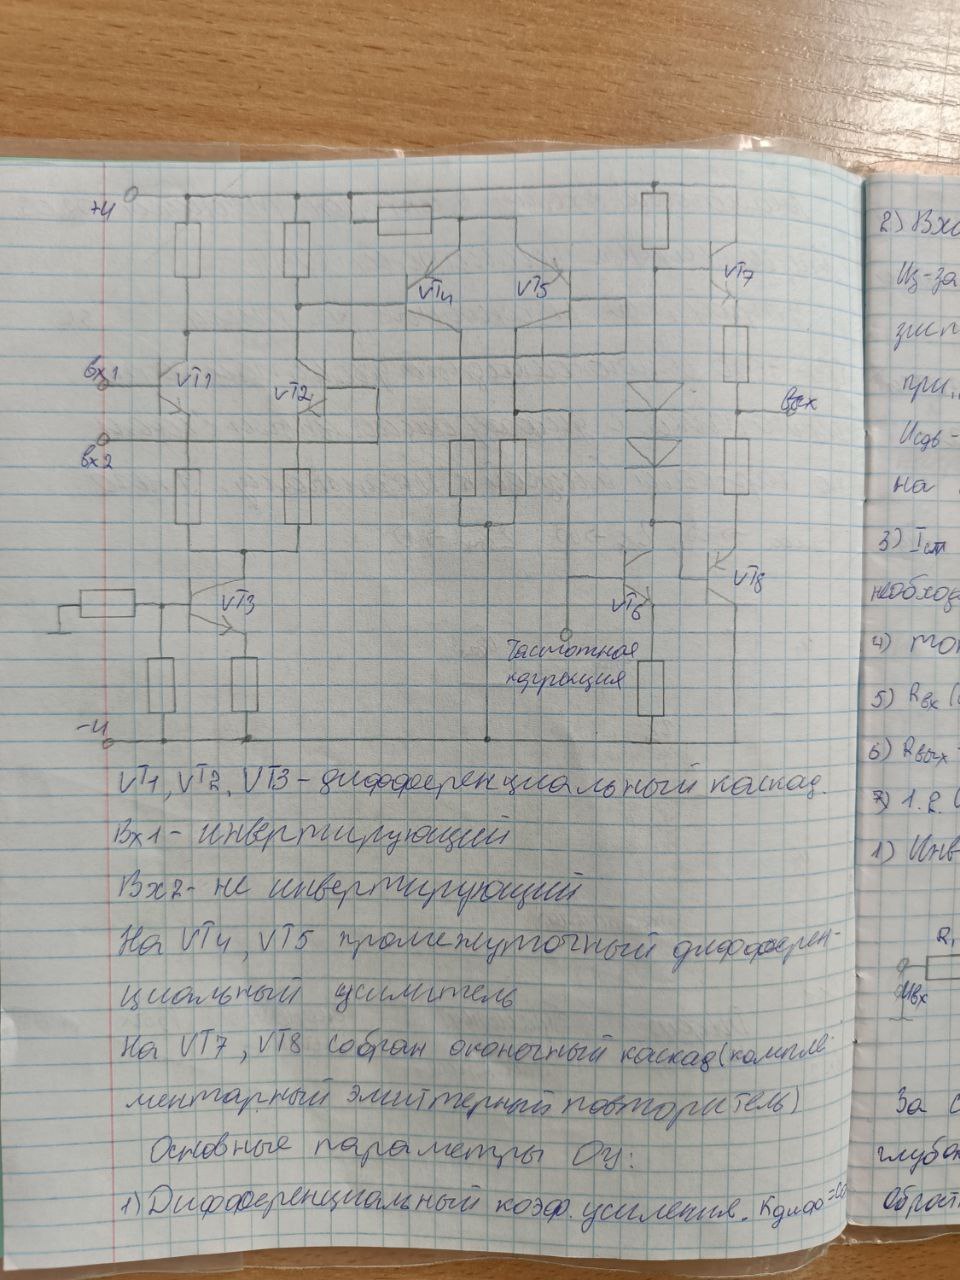 +U
VT4
VT5
VT7
Вх1
VT1
VT2
Вых
Вх2
VT3
VT6
VT8
Частотная
коррекция
-U
VT1, VT2, VT3 - дифференциальный каскад.
Вх1 - инвертирующий
Вх2 - не инвертирующий
На VT4, VT5 промежуточный дифферен-
циальный усилитель
На VT7, VT8 собран оконочный каскад (компле-
ментарный эмиттерный повторитель)
Основные параметры ОУ:
1) Дифференциальный коэф. усиления. Kдифф
2) Вхо
Из-за
зист
при,
Uсдв -
на
3) Iсм
необход
4) Ток
5) Rвх
6) Rвых
7) 1.2.
1) Инв
R1
Uвх
За с
глубок
обратн